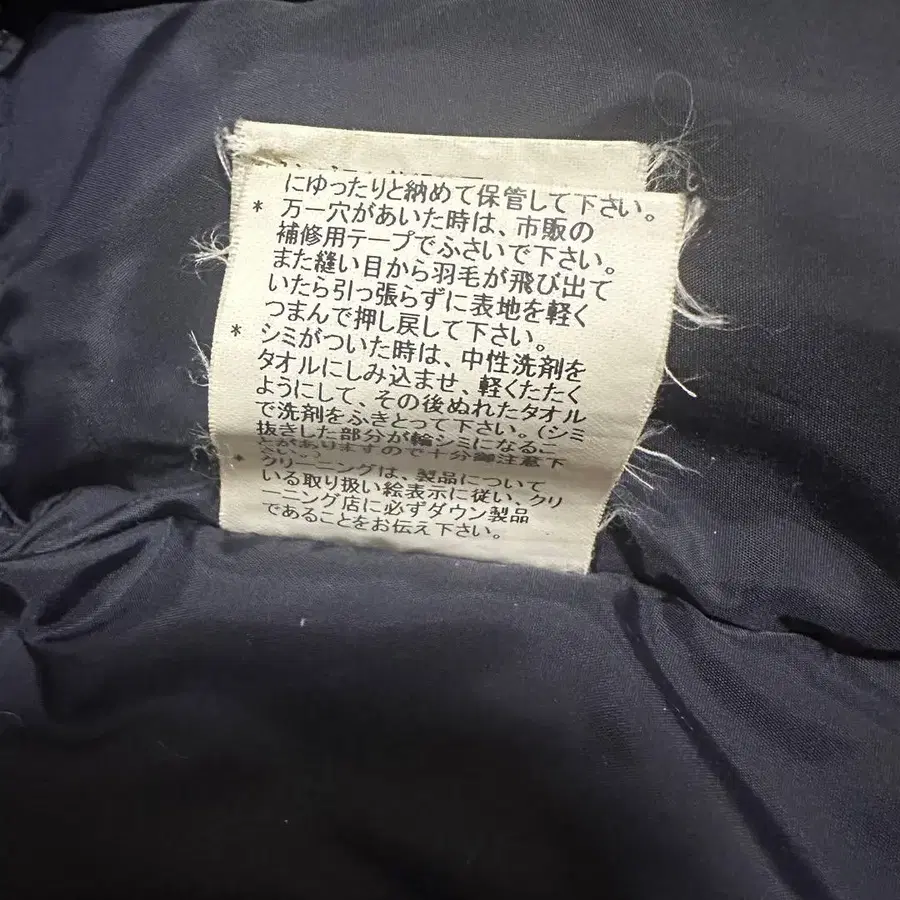 にゆったりと納めて保管して下さい。
* 万一穴があいた時は、市販の
補修用テープでふさいで下さい。
また縫い目から羽毛が飛び出て
いたら引っ張らずに表地を軽く
つまんで押し戻して下さい。
* シミがついた時は、中性洗剤を
タオルにしみ込ませ、軽くたたく
ようにして、その後ぬれたタオル
で洗剤をふきとって下さい。(シミ
抜きした部分が輪シミになるこ
とがありますので十分御注意下
さい。)
* クリーニングは、製品について
いる取り扱い絵表示に従い、クリ
ーニング店に必ずダウン製品
であることをお伝え下さい。